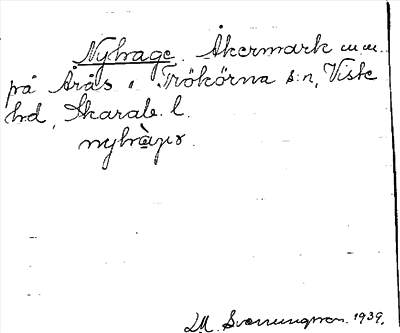 Nyhage. Åkermark m.m.
på Årås i Trökörna s:n, Viste
hd, Skarab. l.
nyhàgɐ
L.M. Svenungsson. 1939.